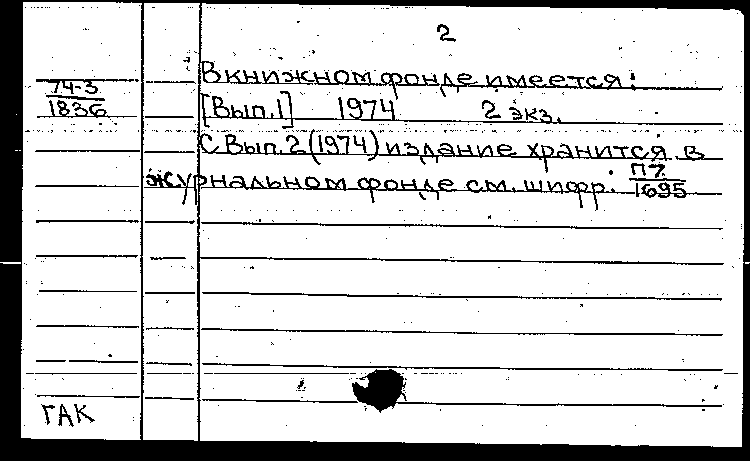 2
В книжном фонде имеется:
74-3
1836
[Вып.1] 1974 2 экз.
С Вып. 2 (1974) издание хранится в
журнальном фонде см. шифр.
П7
1695
ГАК